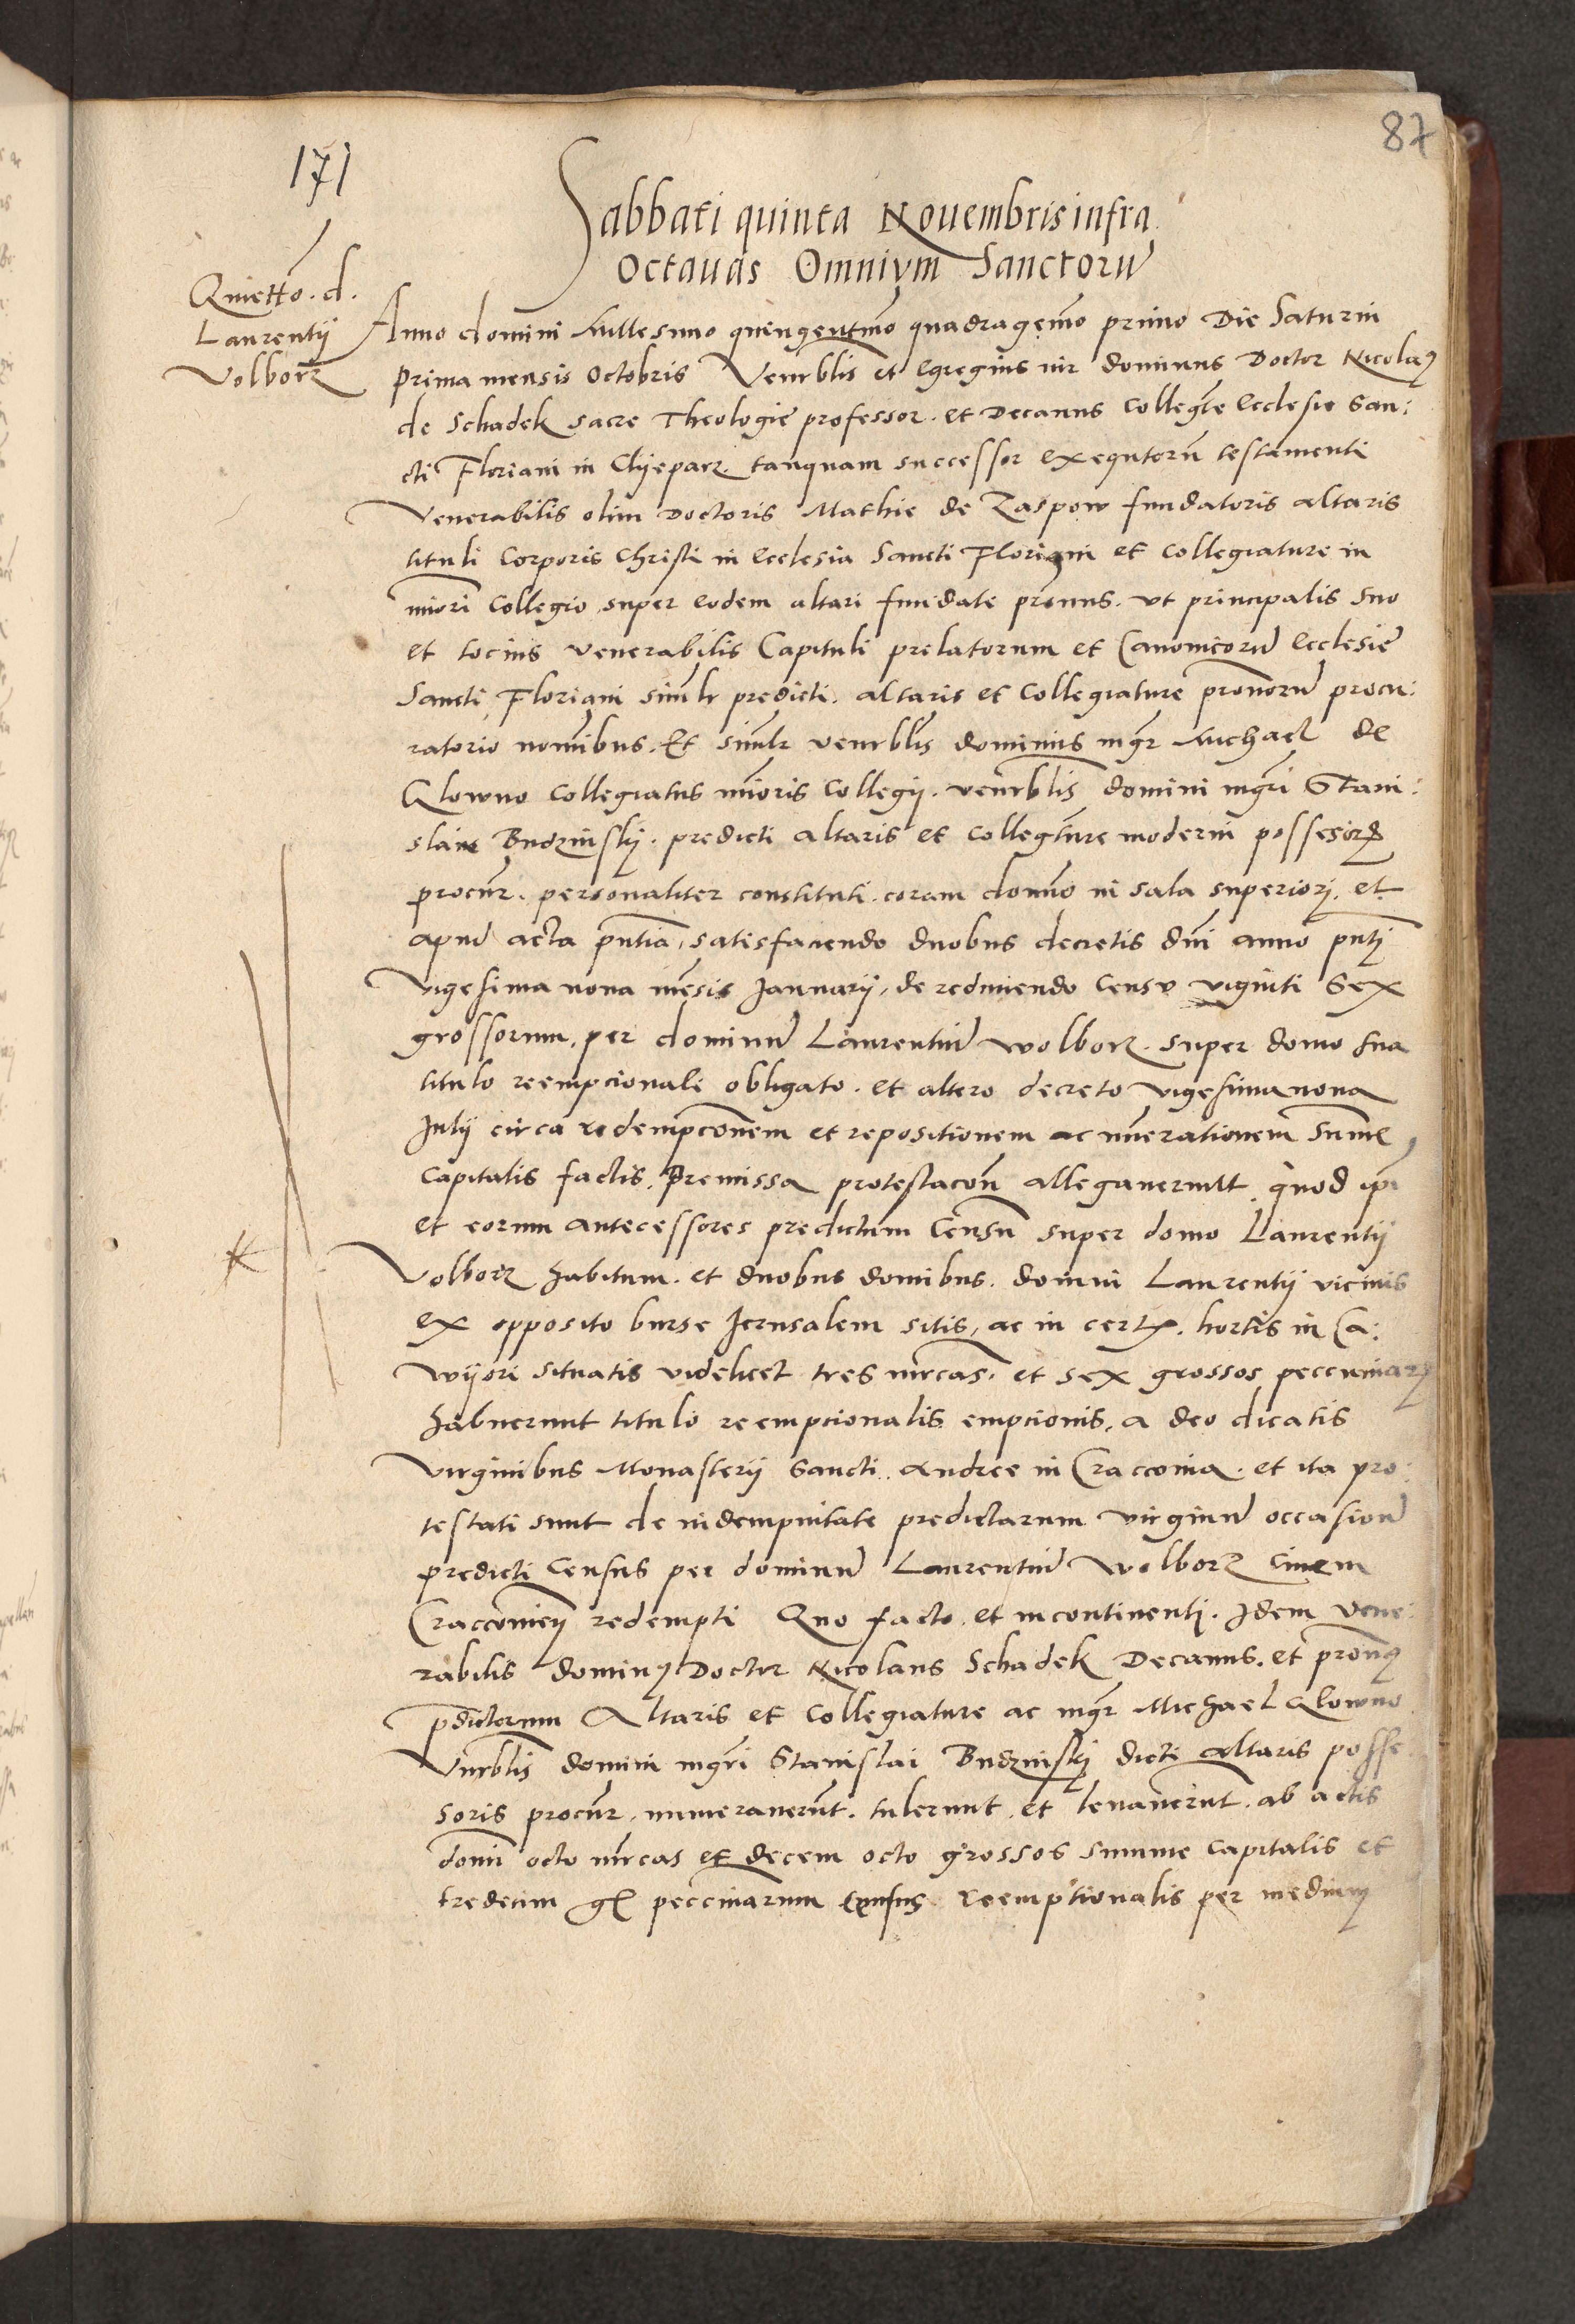 87
171
Sabbati quinta Nouembris infra
Octauas Omnium Sanctorū
Quietto. d.
Laurentij
Volborz
Anno domini Millesimo quingentmo quadragemo primo Die Saturni
prima mensis Octobris Venrblis et Egregius vir dominus Doctor Nicolaꝰ
de Schadek sacre Theologie professor. et Decanus Collegte Ecclesie San:
cti Floriani in Clijeparz. tanquam successor exequtorū testamenti
Venerabilis olim Doctoris Mathie de Zaspow fundatoris altaris
tituli Corporis Christi in Ecclesia Sancti Floriani et Collegiature in
miori Collegio super eodem altari fundate pronus. vt principalis suo
et tocius venerabilis Capituli prelatorum et Canonicorū Ecclesie
Sancti Floriani simlr predicti. altaris et Collegiature pronorū procu:
ratorio nomibus. Et simlr venrblis dominus mgr Michael de
Clowno Collegiatus mioris Collegij. venrblis domini mgri Stani:
slai Budzinskij. predicti altaris et collegture moderni possesoris
procur. personaliter constituti. coram domno in sala superiorj. et
apud acta pntia, satisfaciendo duobus decretis dni anno pntj
vigesima nona mesis Januarij, de redimendo Censu viginti Sex
grossorum, per dominū Laurentiū Wolborz. super domo sua
titulo reempcionali obligato. et altero decreto vigesimanona
Julij circa redempconem et repositionem ac nūerationem Sume
capitalis factis. Premissa protestacon allegauerunt quod ipi
et eorum antecessores predictum Censū super domo Laurentij
Volborz habitum. et duobus domibus. domini Laurentij vicinis
ex opposito burse Jerusalem sitis, ac in certis. hortis in Ca:
wijori situatis videlicet tres mrcas. et sex grossos peccuniarꝫ
habuerunt titulo reempcionalis empcionis, a deo dicatis
virginibus Monasterij Sancti Andree in Craccouia. et ita pro:
testati sunt de indempnitate predictarum virginū occasione
predicti Census per dominū Laurentiū Wolborz Ciuem
Craccouien redempti Quo facto et incontinentj. Idem Vene:
rabilis dominꝰ Doctor Nicolaus Schadek Decanus. et pronꝰ
pdictorum Altaris et Collegiature ac mgr Michael Clowno
Vnrblis domini mgri Stanislai Budzinskj dicti altaris posse
soris procur. numerauerūt. tulerunt et leuauerūt. ab actis
domi octo mrcas et decem octo grossos summe capitalis et
tredecim gr peccuniarum Census reemptionalis per medium